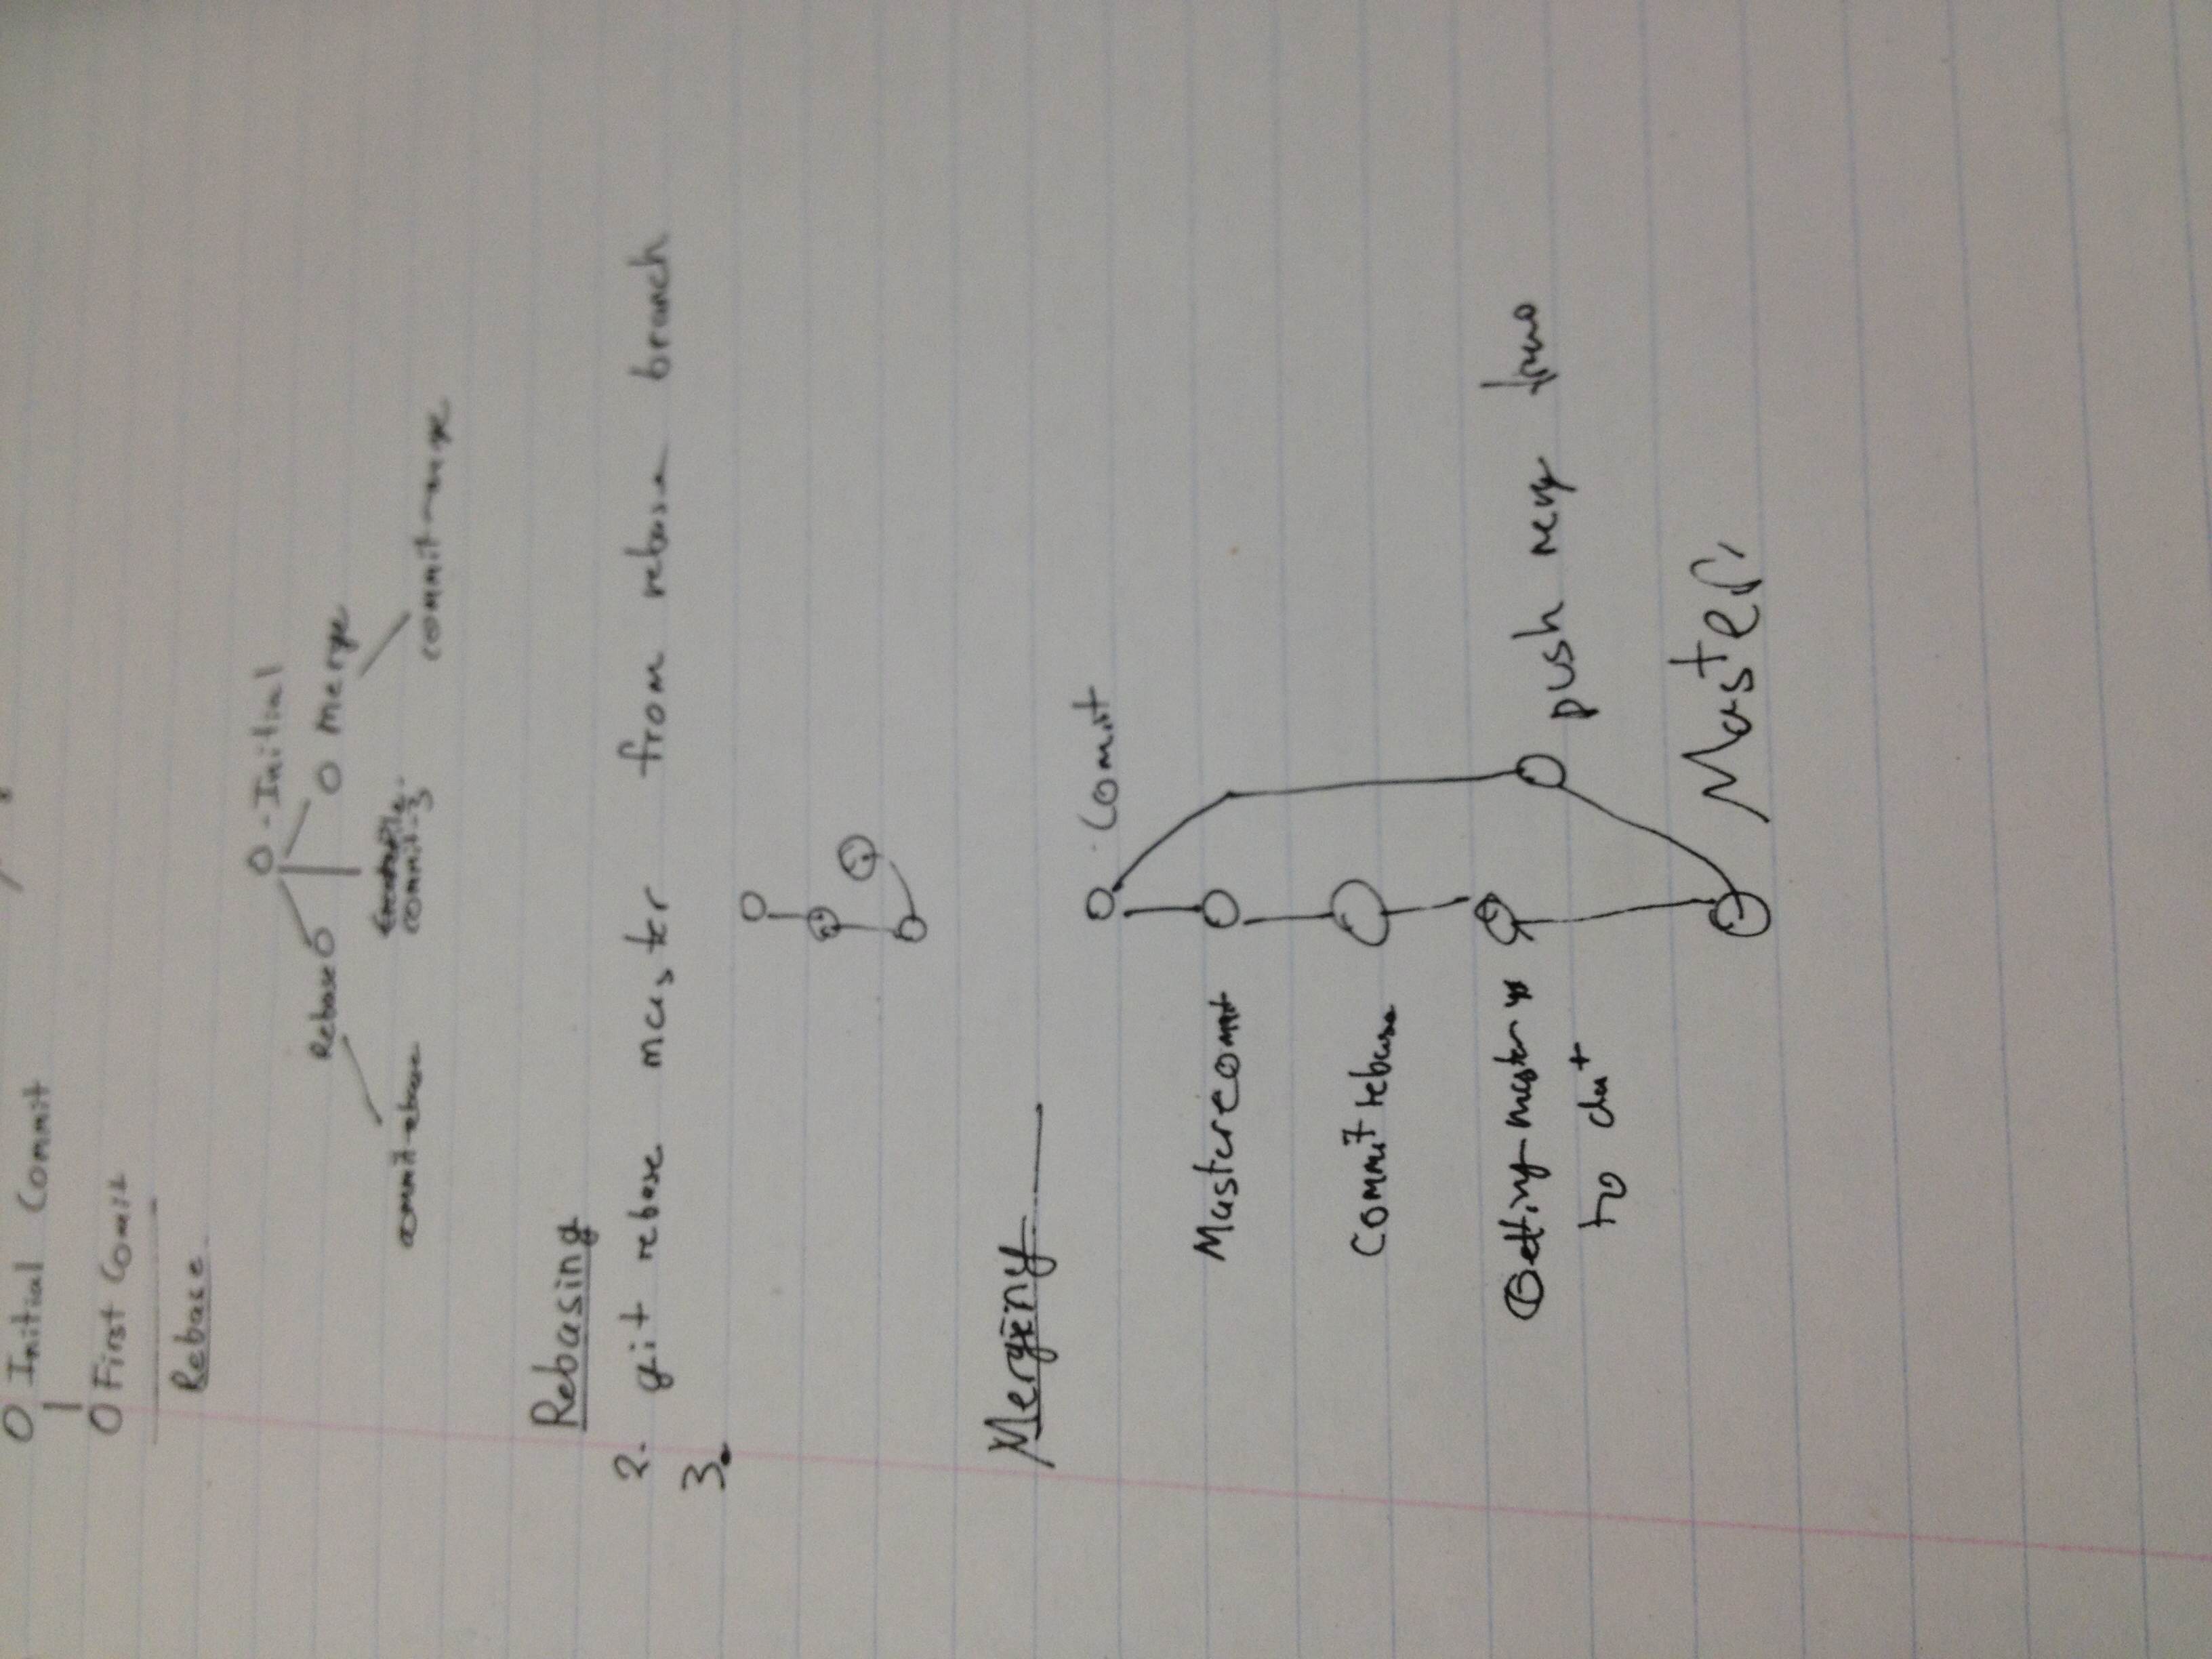 Initial Commit
First Comit
Rebase
- Initial
Rebase
Merge
commit-rebase
commit-3
commit-merge
Rebasing
2. git rebase master from rebase branch
3.
Merging
Commit
Master commit
Commit rebase
Getting master up
to dat
push merge
Master